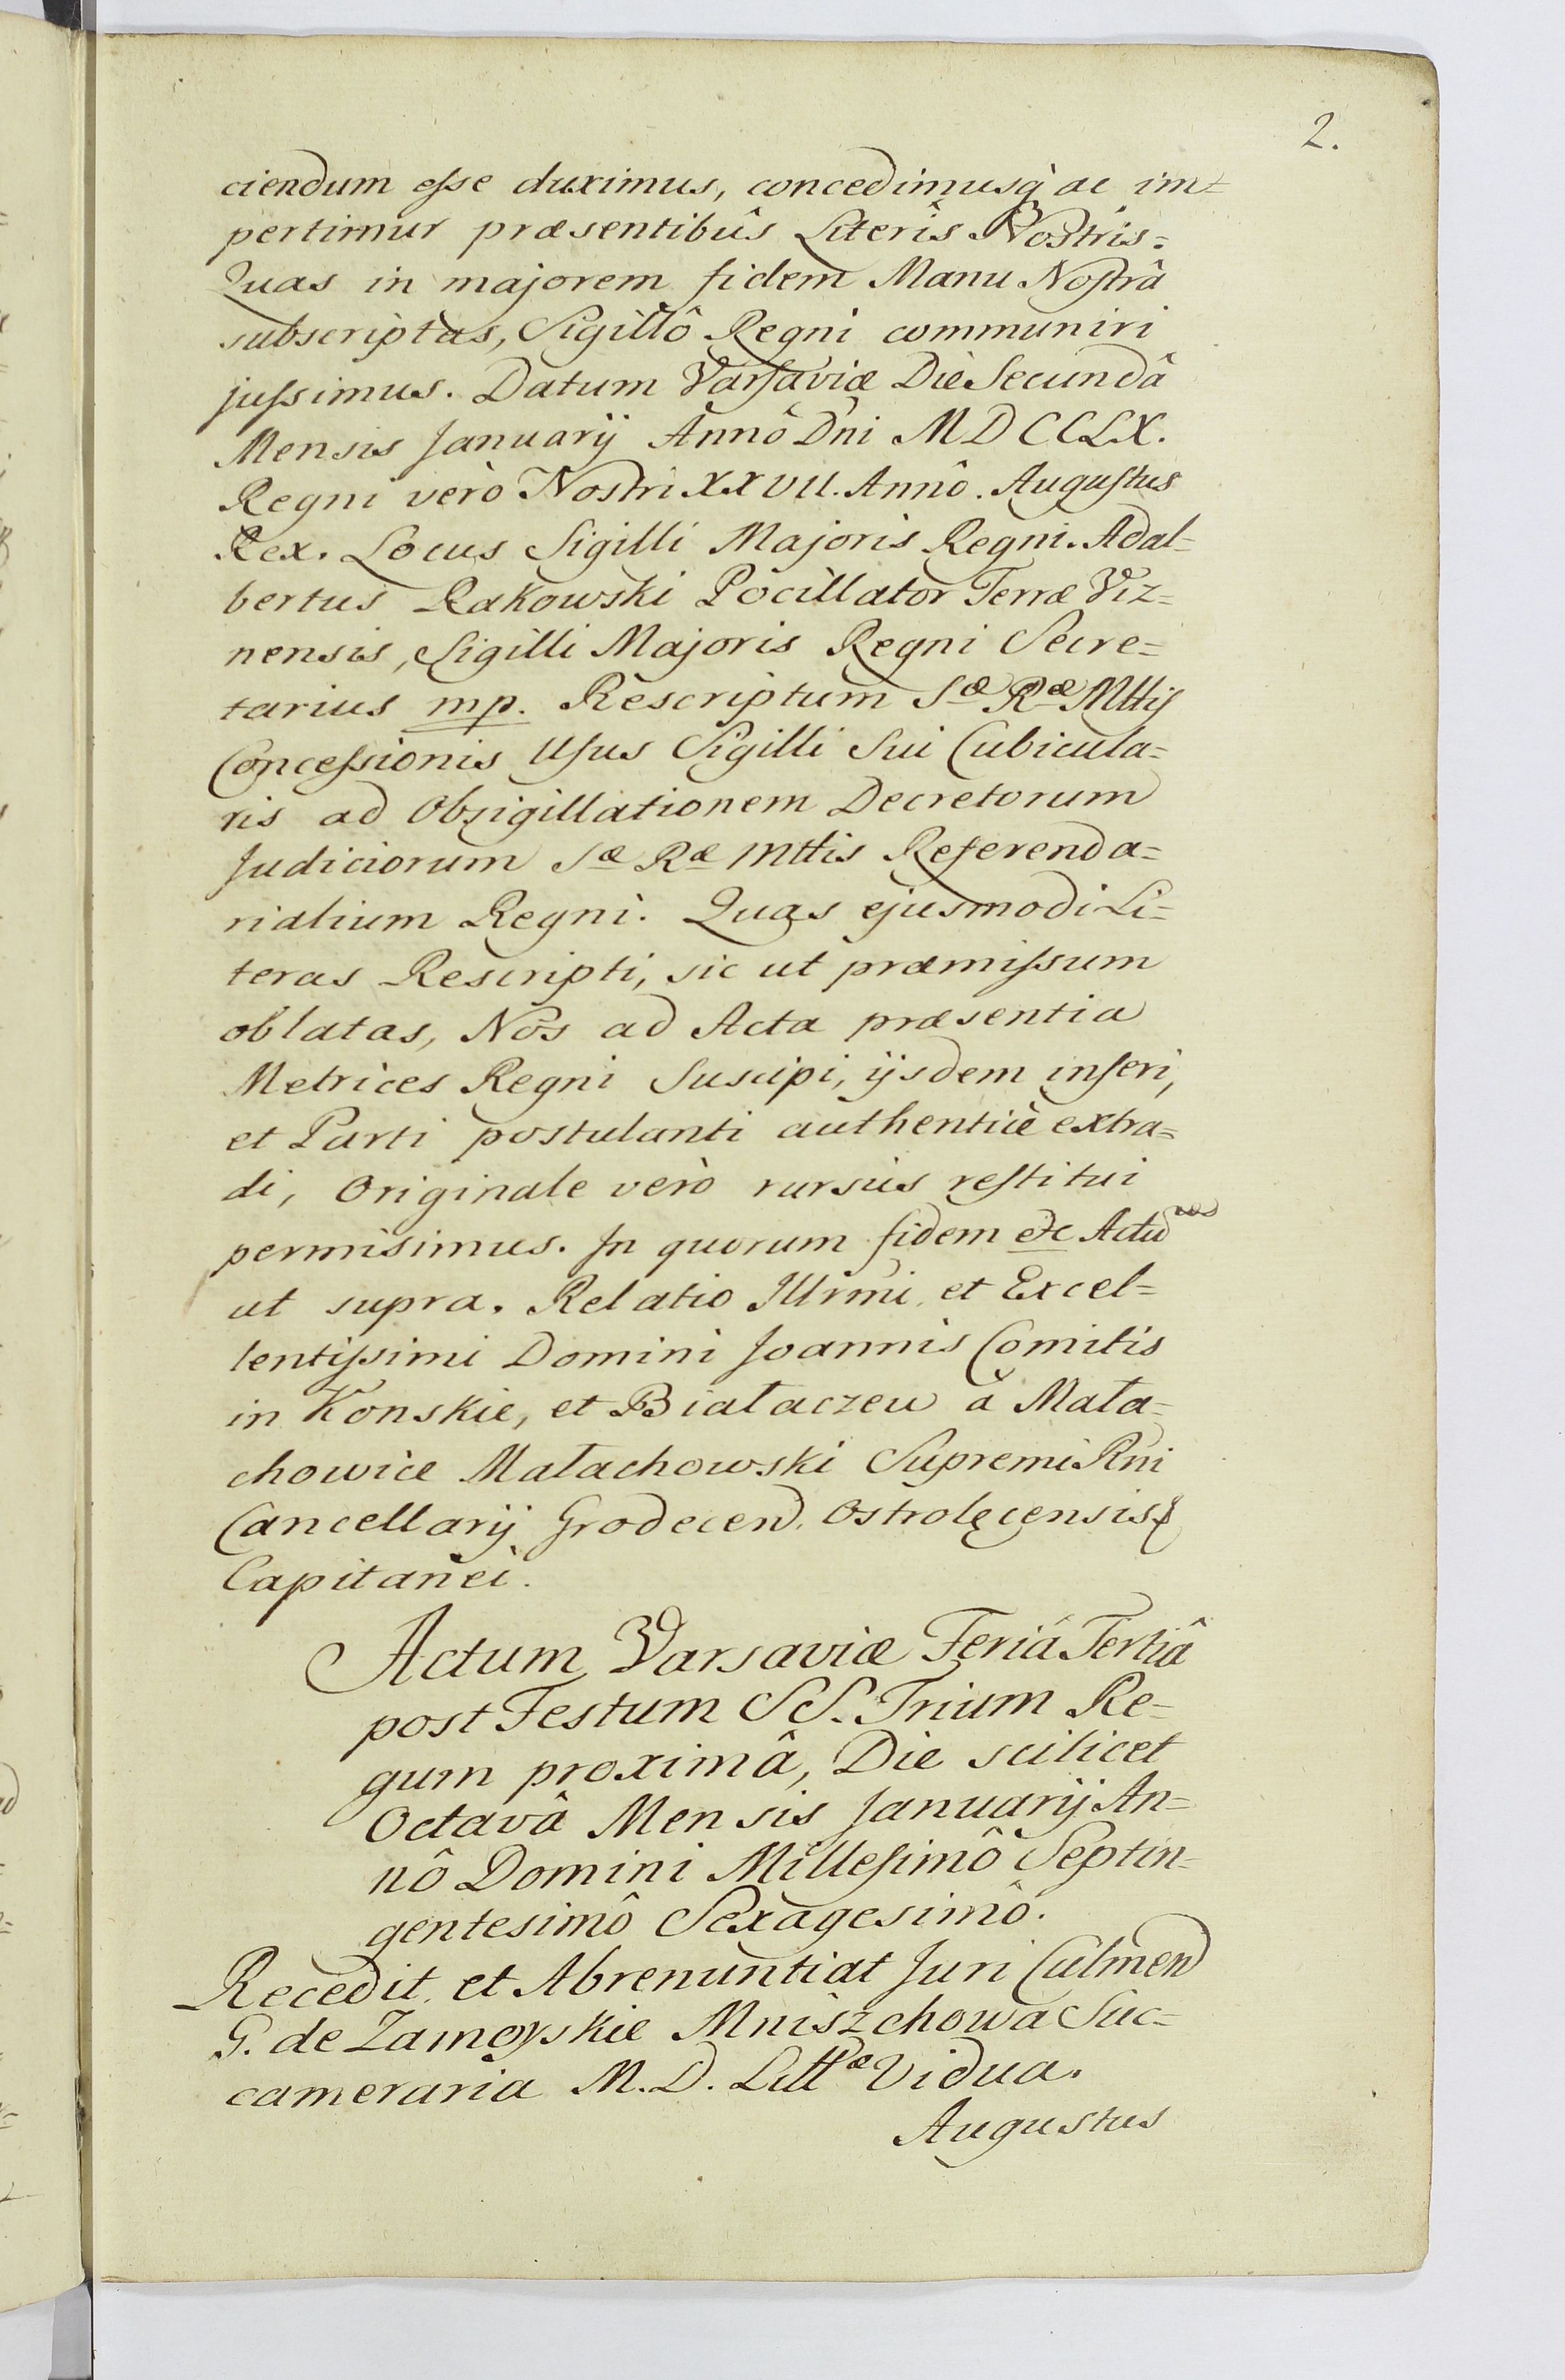 2.
ciendum eſse duximus, concedimusq̀ ac im=
pertimur præsentibûs Literîs Nostrîs.
Quas in majorem fidem Manu Noſtrâ
subscriptas, Sigillô Regni communiri
juſsimus. Datum Varſaviæ Die Secundâ
Mensis Januarÿ Annô Dñi MDCCLX.
Regni verò Nostri XXVII. Annô. Auguſtus
Rex. Locus Sigilli Majoris Regni. Adal=
bertus Rakowski Pocillator Terræ Viz=
nensis, Sigilli Majoris Regni Secre=
tarius mp. Rescriptum Sæ Ræ Mttis
Conceſsionis Uſus Sigilli Sui Cubicula=
ris ad Obsigillationem Decretorum
Judiciorum Sæ Ræ Mttis Referenda=
rialium Regni. Quas ejusmodi Li=
teras Rescripti, sic ut præmiſsum
oblatas, Nos ad Acta præsentia
Metrices Regni Suscipi, ijsdem inſeri,
et Parti postulanti authenticè extra=
di, Originale verò rursùs reſtitui
permisimus. In quorum fidem etc Actũ
ut supra. Relatio Illrmi et Excel=
lentiſsimi Domini Joannis Comitis
in Konskie, et Białaczew à Mała=
chowice Małachowski Supremi Rñi
Cancellarÿ Grodecen. Ostrolęcensis &
Capitanei.
Actum Varsaviæ Feriâ Tertiâ
post Festum SS. Trium Re=
gum proximâ, Die scilicet
Octavâ Mensis Januarÿ An=
nô Domini Milleſimô Septin=
gentesimô Sexagesimô.
Recedit et Abrenuntiat Juri Culmen
G. de Zamoyskie Mniszchowa Suc=
cameraria M. D. Littæ Vidua.
Augustus